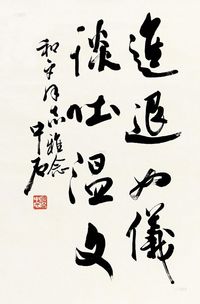 進退如儀
談吐溫文
和平同志雅念
中石